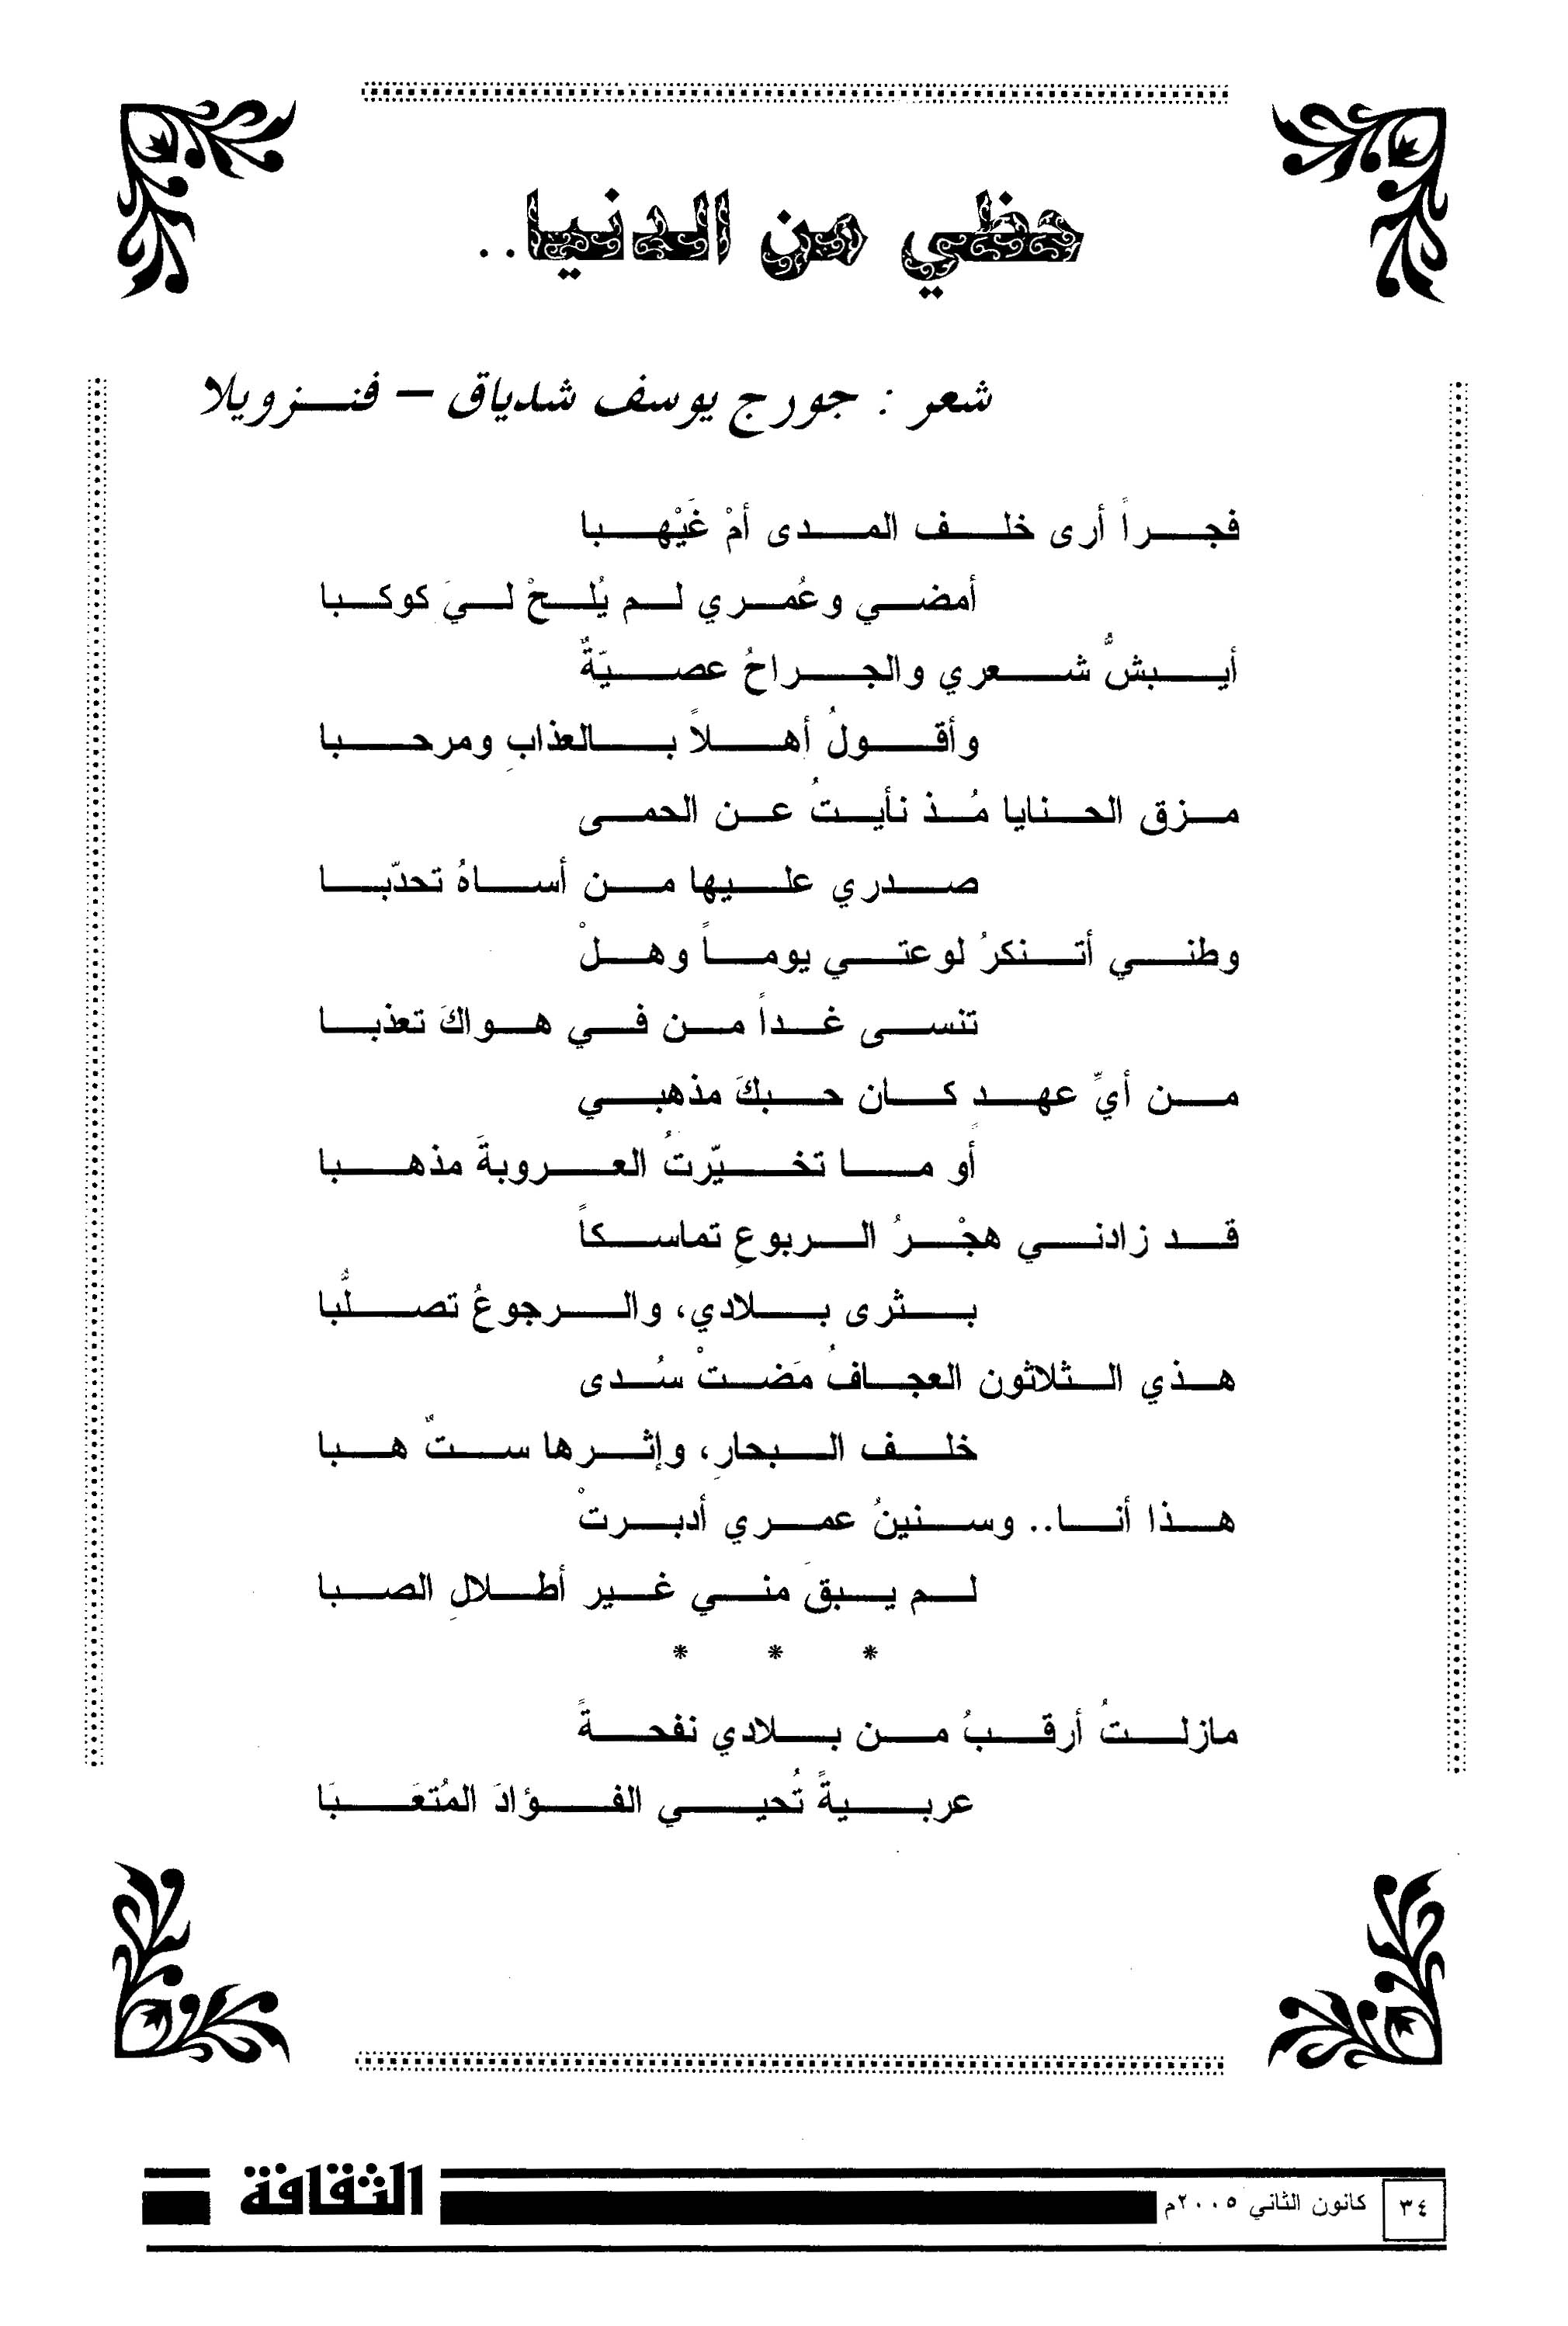 حظي من الدنيا..
شعر : جورج يوسف شدياق – فنزويلا
فجراً أرى خلف المدى أمْ غَيْهبا
أمضي وعُمري لم يُلحْ ليَ كوكبا
أيبشُّ شعري والجراحُ عصيّةٌ
وأقولُ أهلاً بالعذابِ ومرحبا
مزق الحنايا مُذ نأيتُ عن الحمى
صدري عليها من أساهُ تحدّبا
وطني أتنكرُ لوعتي يوماً وهلْ
تنسى غداً من في هواكَ تعذبا
من أيِّ عهدٍ كان حبكَ مذهبي
أو ما تخيّرتُ العروبةَ مذهبا
قد زادني هجْرُ الربوعِ تماسكاً
بثرى بلادي، والرجوعُ تصلُّبا
هذي الثلاثون العجافُ مَضتْ سُدى
خلف البحارِ، وإثرها ستٌ هبا
هذا أنا.. وسنينُ عمري أدبرتْ
لم يبقَ مني غير أطلالِ الصبا
* * *
مازلتُ أرقبُ من بلادي نفحةً
عربيةً تُحيي الفؤادَ المُتعَبَا
٣٤
كانون الثاني ٢٠٠٥م
الثقافة